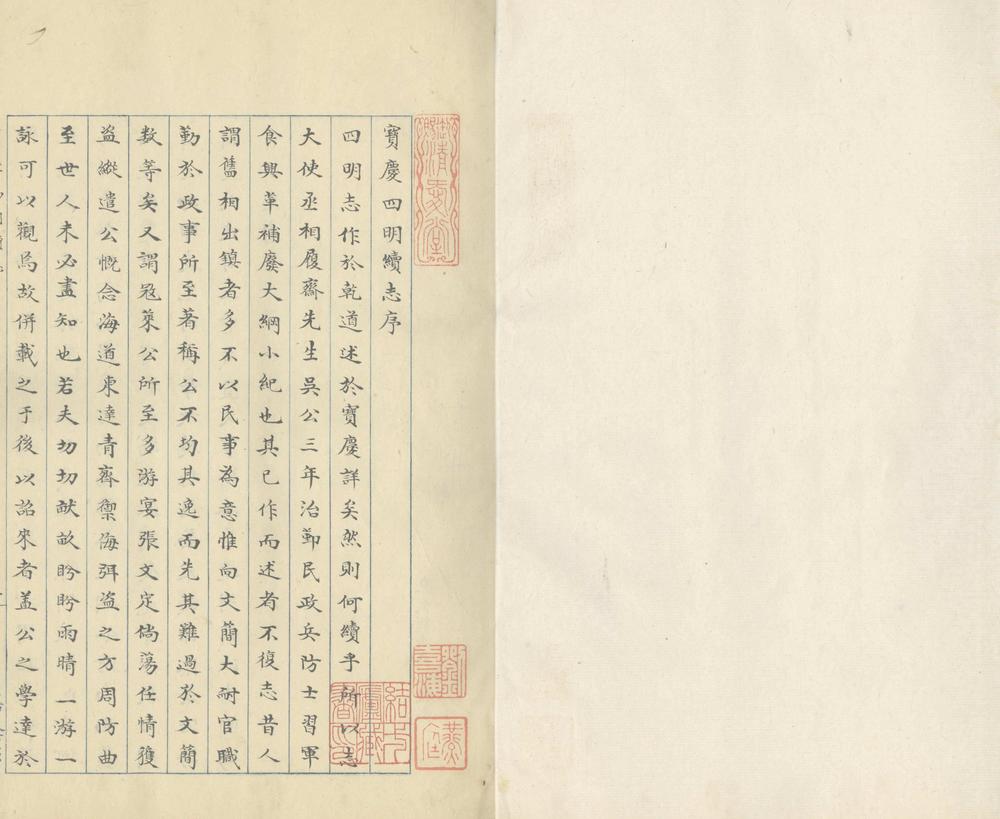 寶慶四明續志序
四明志作於乾道述於寶慶詳矣然則何續乎所以志
大使丞相履齋先生吳公三年治鄞民政兵防士習軍
食興革補廢大綱小紀也其已作而述者不復志昔人
謂舊相出鎮者多不以民事為意惟向文簡大耐官職
勤於政事所至著稱公不均其逸而先其難過於文簡
数等矣又謂冦萊公所至多游宴張文定倘蕩任情獲
盗縱遣公慨念海道東達青齊禦海弭盗之方周防曲
至世人未必盡知也若夫切切献畝盻盻雨晴一游一
詠可以觀焉故併載之于後以詔來者蓋公之學達於
御賜清愛堂
劉喜海
燕庭